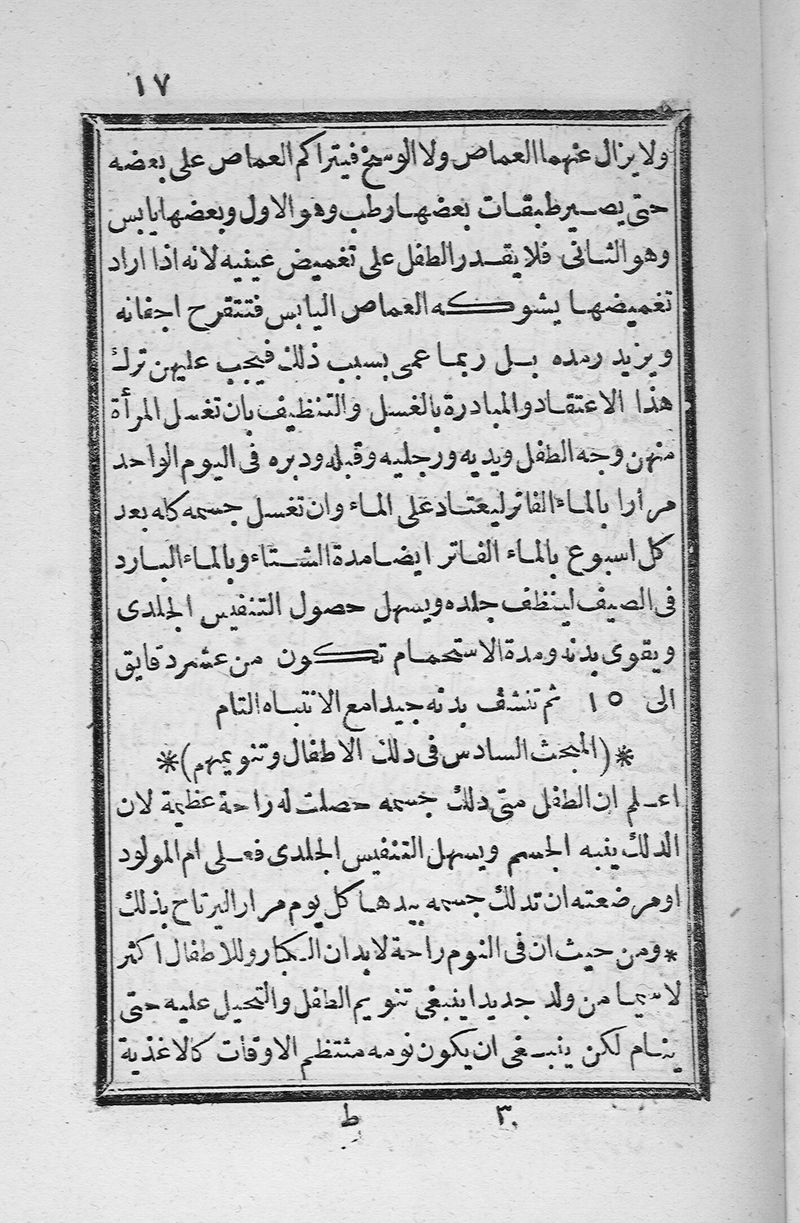 ١٧
ولا يزال عنهما العماص ولا الوسخ فيتراكم العماص على بعضه
حتى يصير طبقات بعضها رطب وهو الاول وبعضها يابس
وهو الثانى فلا يقدر الطفل على تغميض عينيه لانه اذا اراد
تغميضها يشوكه العماص اليابس فتتقرح اجفانه
ويزيد رمده بل ربما عمى بسبب ذلك فيجب عليهن ترك
هذا الاعتقاد والمبادرة بالغسل والتنظيف بان تغسل المرأة
منهن وجه الطفل ويديه ورجليه وقبله ودبره فى اليوم الواحد
مرارا بالماء الفاتر ليعتاد على الماء وان تغسل جسمه كله بعد
كل اسبوع بالماء الفاتر ايضا مدة الشتاء وبالماء البارد
فى الصيف لينظف جلده ويسهل حصول التنفيس الجلدى
ويقوى بدنه ومدة الاستحمام تكون من عشر دقايق
الى ١٥ ثم تنشف بدنه جيدا مع الانتباه التام
*(المبحث السادس فى دلك الاطفال وتنويمهم)*
اعلم ان الطفل متى دلك جسمه حصلت له راحة عظيمة لان
الدلك ينبه الجسم ويسهل التنفيس الجلدى فعلى ام المولود
او مرضعته ان تدلك جسمه بيدها كل يوم مرارا ليرتاح بذلك
* ومن حيث ان فى النوم راحة لابدان الكبار وللاطفال اكثر
لا سيما من ولد جديدا ينبغى تنويم الطفل والتحيل عليه حتى
ينام لكن ينبغى ان يكون نومه منتظم الاوقات كالاغذية
٣ ط